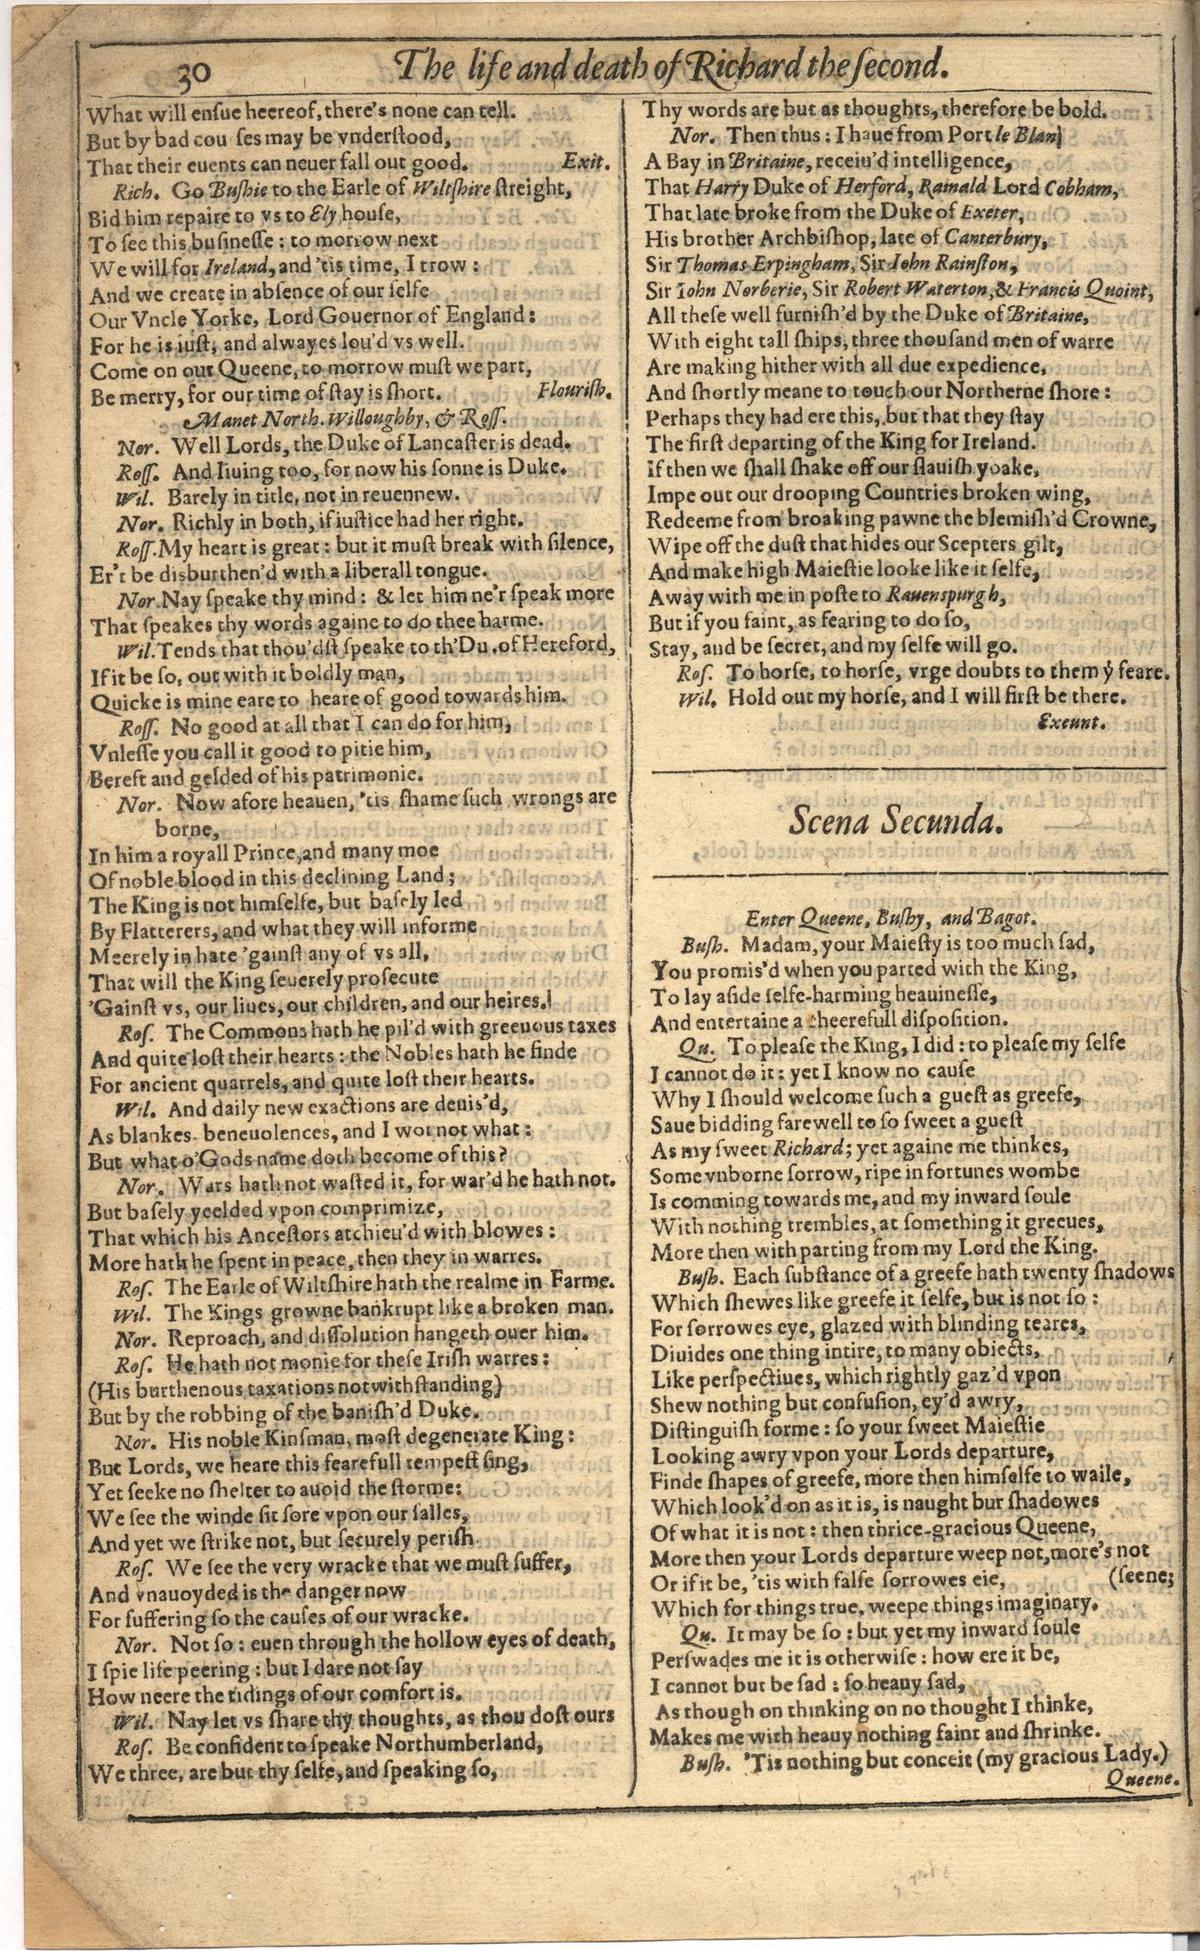 30
The life and death of Richard the ſecond.
What will enſue heereof, there's none can tell.
But by bad cou ſes may be vnderſtood,
That their euents can neuer fall out good. Exit.
Rich. Go Buſhie to the Earle of Wiltſhire ſtreight,
Bid him repaire to vs to Ely houſe,
To ſee this buſineſſe : to morrow next
We will for Ireland, and 'tis time, I trow :
And we create in abſence of our ſelfe
Our Vncle Yorke, Lord Gouernor of England :
For he is iuſt, and alwayes lou'd vs well.
Come on our Queene, to morrow muſt we part,
Be merry, for our time of ſtay is ſhort. Flouriſh.
Manet North. Willoughby, & Roſſ.
Nor. Well Lords, the Duke of Lancaſter is dead.
Roſſ. And liuing too, for now his ſonne is Duke.
Wil. Barely in title, not in reuennew.
Nor. Richly in both, if iuſtice had her right.
Roſſ. My heart is great : but it muſt break with ſilence,
Er't be disburthen'd with a liberall tongue.
Nor. Nay ſpeake thy mind : & let him ne'r ſpeak more
That ſpeakes thy words againe to do thee harme.
Wil. Tends that thou'dſt ſpeake to th'Du. of Hereford,
If it be ſo, out with it boldly man,
Quicke is mine eare to heare of good towards him.
Roſſ. No good at all that I can do for him,
Vnleſſe you call it good to pitie him,
Bereft and gelded of his patrimonie.
Nor. Now afore heauen, 'tis ſhame ſuch wrongs are
borne,
In him a royall Prince, and many moe
Of noble blood in this declining Land ;
The King is not himſelfe, but baſely led
By Flatterers, and what they will informe
Meerely in hate 'gainſt any of vs all,
That will the King ſeuerely proſecute
'Gainſt vs, our liues, our children, and our heires.
Roſ. The Commons hath he pil'd with greeuous taxes
And quite loſt their hearts : the Nobles hath he finde
For ancient quarrels, and quite loſt their hearts.
Wil. And daily new exactions are deuis'd,
As blankes, beneuolences, and I wot not what :
But what o'Gods name doth become of this?
Nor. Wars hath not waſted it, for war'd he hath not.
But baſely yeelded vpon comprimize,
That which his Anceſtors atchieu'd with blowes :
More hath he ſpent in peace, then they in warres.
Roſ. The Earle of Wiltſhire hath the realme in Farme.
Wil. The Kings growne bankrupt like a broken man.
Nor. Reproach, and diſſolution hangeth ouer him.
Roſ. He hath not monie for theſe Iriſh warres :
(His burthenous taxations notwithſtanding)
But by the robbing of the baniſh'd Duke.
Nor. His noble Kinſman, moſt degenerate King :
But Lords, we heare this fearefull tempeſt ſing,
Yet ſeeke no ſhelter to auoid the ſtorme :
We ſee the winde ſit ſore vpon our ſalles,
And yet we ſtrike not, but ſecurely periſh.
Roſ. We ſee the very wracke that we muſt ſuffer,
And vnauoyded is the danger now
For ſuffering ſo the cauſes of our wracke.
Nor. Not ſo : euen through the hollow eyes of death,
I ſpie life peering : but I dare not ſay
How neere the tidings of our comfort is.
Wil. Nay let vs ſhare thy thoughts, as thou doſt ours
Roſ. Be confident to ſpeake Northumberland,
We three, are but thy ſelfe, and ſpeaking ſo,
Thy words are but as thoughts, therefore be bold.
Nor. Then thus : I haue from Port le Blan
A Bay in Britaine, receiu'd intelligence,
That Harry Duke of Herford, Rainald Lord Cobham,
That late broke from the Duke of Exeter,
His brother Archbiſhop, late of Canterbury,
Sir Thomas Erpingham, Sir Iohn Rainſton,
Sir Iohn Norberie, Sir Robert Waterton, & Francis Quoint,
All theſe well furniſh'd by the Duke of Britaine,
With eight tall ſhips, three thouſand men of warre
Are making hither with all due expedience,
And ſhortly meane to touch our Northerne ſhore :
Perhaps they had ere this, but that they ſtay
The firſt departing of the King for Ireland.
If then we ſhall ſhake off our ſlauiſh yoake,
Impe out our drooping Countries broken wing,
Redeeme from broaking pawne the blemiſh'd Crowne,
Wipe off the duſt that hides our Scepters gilt,
And make high Maieſtie looke like it ſelfe,
Away with me in poſte to Rauenspurgh,
But if you faint, as fearing to do ſo,
Stay, and be ſecret, and my ſelfe will go.
Roſ. To horſe, to horſe, vrge doubts to them ẏ feare.
Wil. Hold out my horſe, and I will firſt be there.
Exeunt.
Scena Secunda.
Enter Queene, Buſhy, and Bagot.
Buſh. Madam, your Maieſty is too much ſad,
You promis'd when you parted with the King,
To lay aſide ſelfe-harming heauineſſe,
And entertaine a cheerefull diſpoſition.
Qu. To pleaſe the King, I did : to pleaſe my ſelfe
I cannot do it : yet I know no cauſe
Why I ſhould welcome ſuch a gueſt as greefe,
Saue bidding farewell to ſo ſweet a gueſt
As my ſweet Richard ; yet againe me thinkes,
Some vnborne ſorrow, ripe in fortunes wombe
Is comming towards me, and my inward ſoule
With nothing trembles, at ſomething it greeues,
More then with parting from my Lord the King.
Buſh. Each ſubſtance of a greefe hath twenty ſhadows
Which ſhewes like greefe it ſelfe, but is not ſo :
For ſorrowes eye, glazed with blinding teares,
Diuides one thing intire, to many obiects,
Like perſpectiues, which rightly gaz'd vpon
Shew nothing but confuſion, ey'd awry,
Diſtinguiſh forme : ſo your ſweet Maieſtie
Looking awry vpon your Lords departure,
Finde ſhapes of greefe, more then himſelfe to waile,
Which look'd on as it is, is naught bur ſhadowes
Of what it is not : then thrice-gracious Queene,
More then your Lords departure weep not, more's not
Or if it be, 'tis with falſe ſorrowes eie, (ſeene;
Which for things true, weepe things imaginary.
Qu. It may be ſo : but yet my inward ſoule
Perſwades me it is otherwiſe : how ere it be,
I cannot but be ſad : ſo heauy ſad,
As though on thinking on no thought I thinke,
Makes me with heauy nothing faint and ſhrinke.
Buſh. 'Tis nothing but conceit (my gracious Lady.)
Queene.